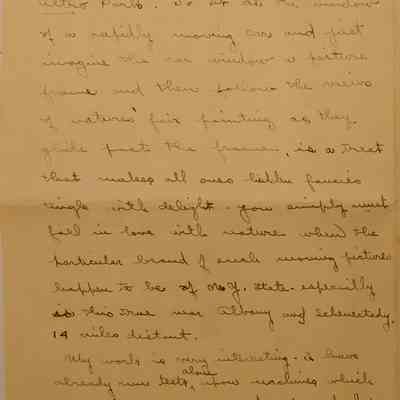 Parks. To sit at the window
of a rapidly moving car and just
imagine the car window a picture
frame and then follow the views
of natures' fair painting as they
glide past the frame, is a treat
that makes all ones hidden fancies
tingle with delight. You simply must
fall in love with nature when the
particular brand of such moving pictures
happen to be of N.Y. State - especially
is this true near Albany and Schenectady,
14 miles distant.
My work is very interesting - I have
already run tests, alone upon machines which